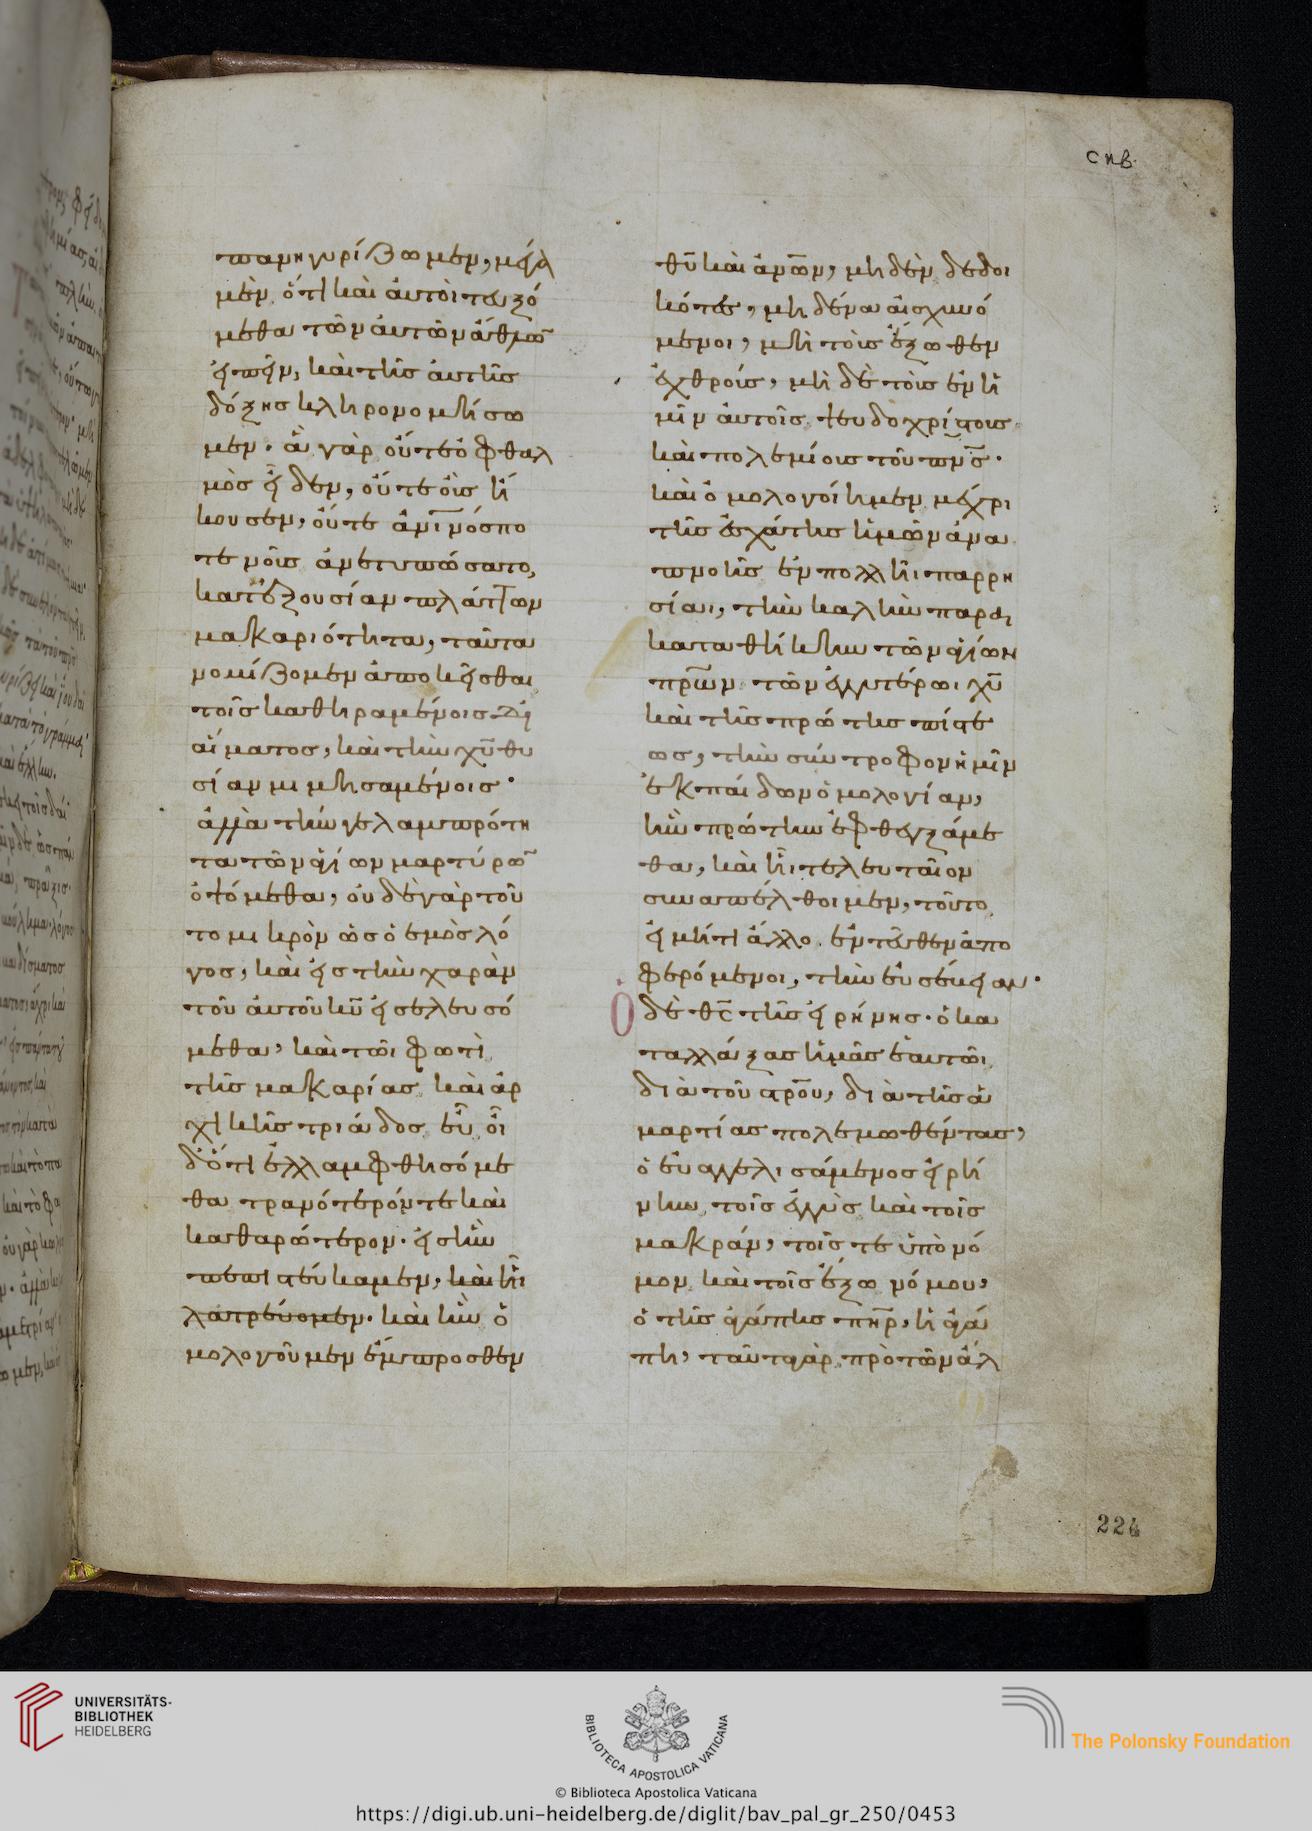 σπβ.
πανηγυρίζωμεν, μᾶλ
μὲν ὅτι καὶ αὐτοὶ τευξό
μεθα τῶν αὐτῶν ἄθλω̅
εἰπεῖν, καὶ τῆς αὐτῆς
δόξης κληρονομήσω
μεν· ἃ γὰρ οὔτε ὀφθαλ
μὸς εἶδεν, οὔτε οὖς ἤ
κουσεν, οὔτε ἄν̅ι̅ νόσπο
τε νοῦς ἀνετυπώσατο,
κατ' ἐξουσίαν πλάττων
μακαριότητα, ταῦτα
νομίζομεν ἀποκεῖσθαι
τοῖς καθηραμένοις δι'
αἵματος, καὶ τὴν χ̅υ̅ θυ
σίαν μιμησαμένοις·
ἀλλὰ τήν γε λαμπρότη
τα τῶν ἁγίων μαρτύρω̅
ὀψόμεθα, οὐδὲ γὰρ τοῦ
το μικρὸν ὡς ὁ ἐμὸς λό
γος, καὶ εἰς τὴν χαρὰν
τοῦ αὐτοῦ κ̅υ̅ εἰσελευσό
μεθα, καὶ τῶι φωτὶ
τῆς μακαρίας καὶ ἀρ
χικῆς τριάδος εὖ οἶ
δ' ὅτι ἐλλαμφθησόμε
θα τρανότερόν τε καὶ
καθαρώτερον· εἰς ἣν
πεπιστεύκαμεν, καὶ ἧι
λατρεύομεν· καὶ ἣν ὁ
μολογοῦμεν ἔμπροσθεν
θ̅υ̅ καὶ ἀν̅ω̅ν, μηδὲν δεδοι
κότες, μηδέν αἰσχυνό
μενοι, μὴ τοὺς ἔξωθεν
ἐχθρούς, μὴ δὲ τοὺς ἐν ἡ
μῖν αὐτοῖς ψευδοχρίστους
καὶ πολεμίους τοῦ π̅ν̅ς̅·
καὶ ὁμολογοίημεν μέχρι
τῆς ἐσχάτης ἡμῶν ἀνα
πνοῆς ἐν πολλῆι παρρη
σίαι, τὴν καλὴν παρα
καταθήκην τῶν ἁγίων
π̅ρ̅ω̅ν τῶν ἐγγυτέρωι χ̅υ̅
καὶ τῆς πρώτης πίστε
ως, τὴν σύντροφον ἡμῖν
ἐκ παίδων ὁμολογίαν,
ἣν πρώτην ἐφθεγξάμε
θα, καὶ ἧι τελευταῖον
συναπέλθοιμεν, τοῦτο
εἰ μή τι ἄλλο ἐντεῦθεν ἀπο
φερόμενοι, τὴν εὐσέβειαν·
Ὁ δὲ θ̅ς̅ τῆς εἰρήνης· ὁ κα
ταλλάξας ἡμᾶς ἑαυτῶι
διὰ τοῦ σ̅ρ̅ο̅υ̅, διὰ τῆς ἁ
μαρτίας πολεμωθέντας,
ὁ εὐαγγελισάμενος εἰρή
νην τοῖς ἐγγὺς καὶ τοῖς
μακράν, τοῖς τε ὑπὸ νό
μον καὶ τοῖς ἔξω νόμου,
ὁ τῆς ἀγάπης π̅η̅ρ̅, ἡ ἀγά
πη, ταῦτα γὰρ πρὸ τῶν ἄλ
224
UNIVERSITÄTS-
BIBLIOTHEK
HEIDELBERG
BIBLIOTECA APOSTOLICA VATICANA
© Biblioteca Apostolica Vaticana
The Polonsky Foundation
https://digi.ub.uni-heidelberg.de/diglit/bav_pal_gr_250/0453